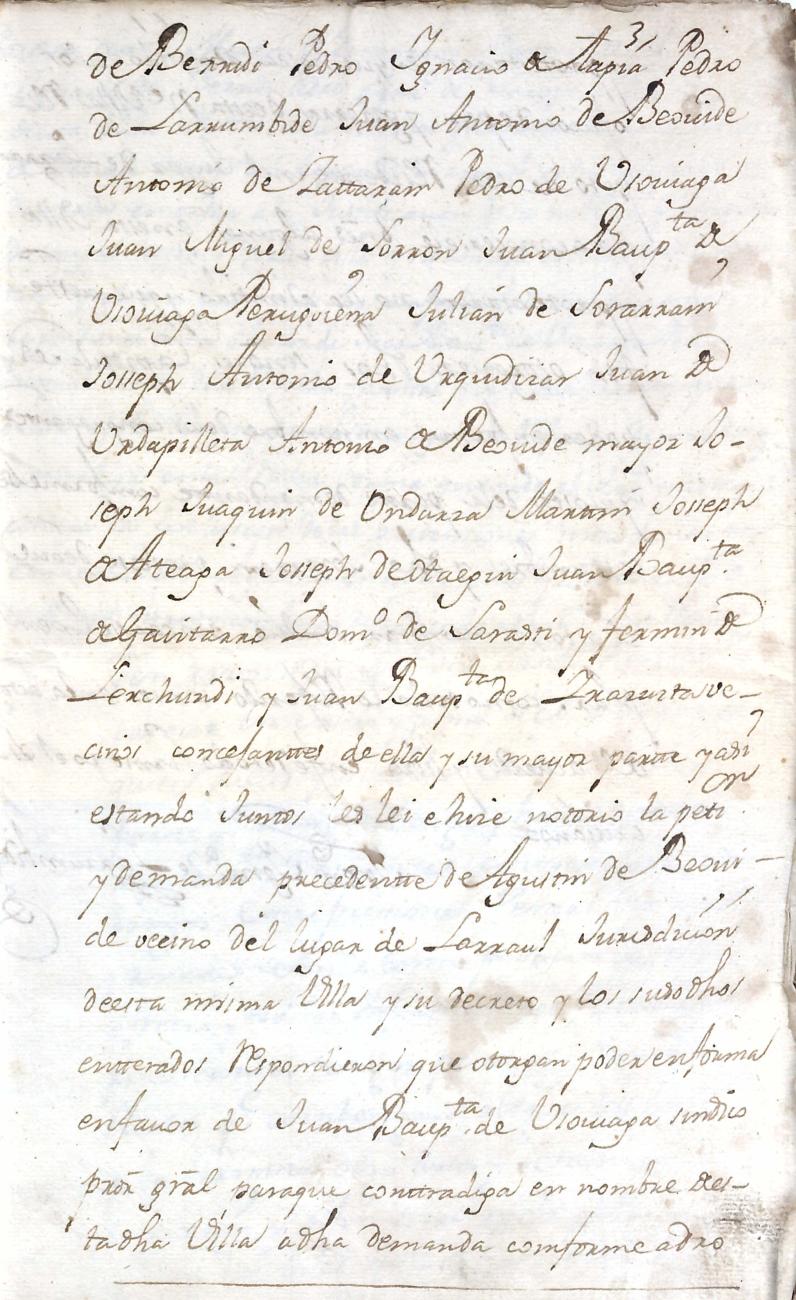 de Berridi Pedro Ygnacio de Tapia Pedro
de Larrumbide Juan Antonio de Beovide
Antonio de Zattarain Pedro de Usoviaga
Juan Miguel de Sorron Juan Baupta de
Usoviaga Peruguiena Julian de Sorarrain
Josseph Antonio de Urquidizar Juan de
Urdapilleta Antonio de Beovide mayor Jo-
seph Juaquin de Ondarza Martin Josseph
de Ateaga Josseph de Otaegui Juan Baupta
de Gavitarro Domo de Sarasti y fermin de
Lerchundi y Juan Baupta de Irazusta ve-
cinos concejanttes de ella y su mayor partte y asi
estando Juntos les lei e hize notorio la petion
y demanda precedentte de Agustin de Beovi-
de vecino del lugar de Larraul Jurisdicion
de esta misma Villa y su decreto y los susodhos
entterados respondieron que otorgan poder en forma
en favor de Juan Baupta de Usoviaga sindico
pror gral para que conttradiga en nombre de es-
ta dha Villa a dha demanda comforme a dro